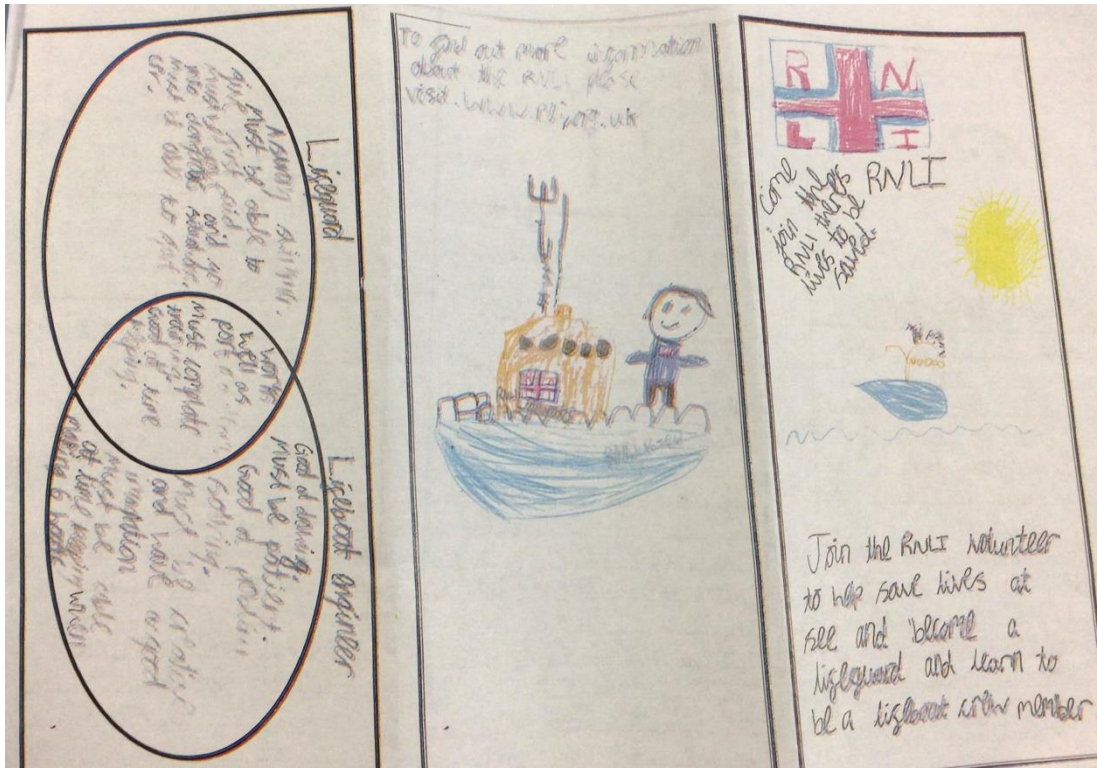 Lifeguard
A strong swimmer.
Must be able to
give first aid
Must go
into dangerous situations.
must be able to
Works
well as
part of a team
Must complete
training
Good at time
keeping.
Lifeboat engineer
Good at driving.
Must be patient
Good at problem
solving.
Must be creative
and have a good
imagination
Must be able
at
To find out more information
about the RNLI please
visit. www.
RNLI
RNLI
Come
join the
RNLI theres
lives to be
saved.
Join the RNLI volunteer
to help save lives at
see and become a
lifeguard and learn to
be a lifeboat crew member